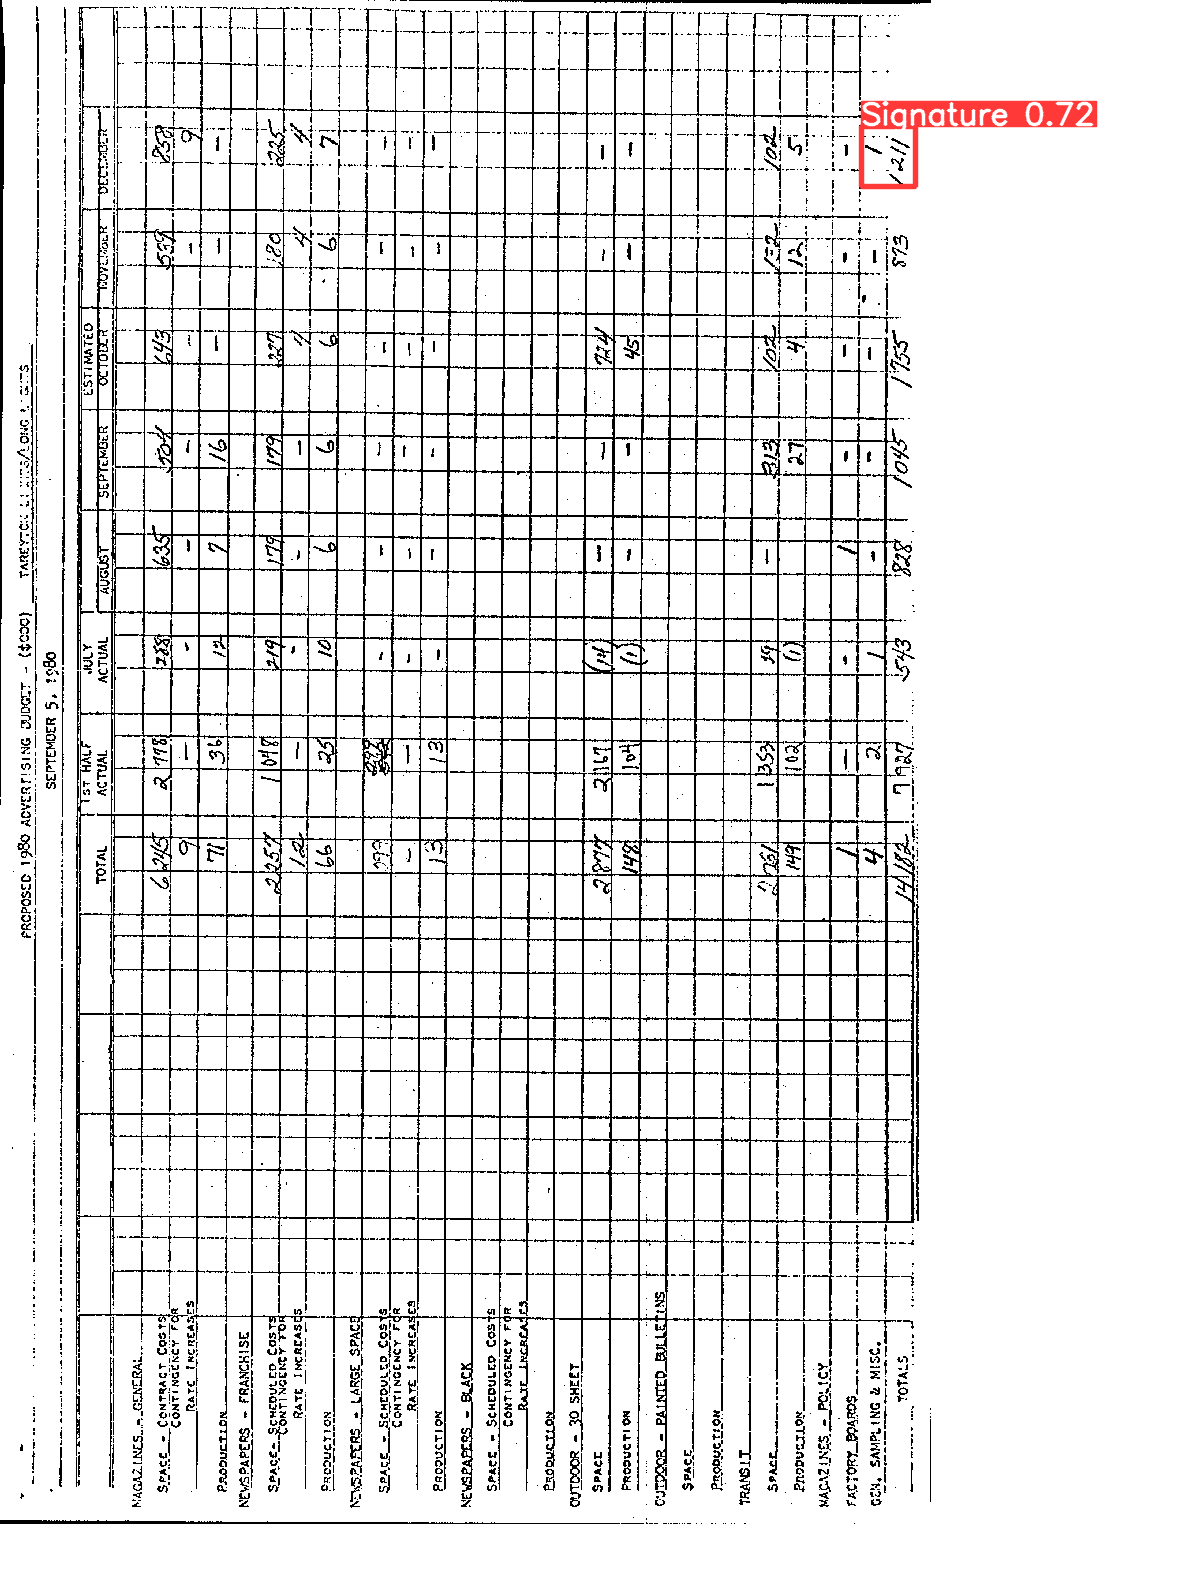 PROPOSED 1980 ADVERTISING BUDGET - ($000) TAREYTON LIGHTS/LONG LIGHTS
SEPTEMBER 5, 1980
ESTIMATED
TOTAL 1ST HALF ACTUAL JULY ACTUAL AUGUST SEPTEMBER OCTOBER NOVEMBER DECEMBER
MAGAZINES - GENERAL
SPACE - CONTRACT COSTS 6245 2778 288 635 504 643 539 858
CONTINGENCY FOR
RATE INCREASES 9 - - - - - - 9
PRODUCTION 71 36 12 7 16 - - -
NEWSPAPERS - FRANCHISE
SPACE - SCHEDULED COSTS 2257 1048 219 179 179 227 180 225
CONTINGENCY FOR
RATE INCREASES 12 - - - - 4 4 4
PRODUCTION 66 25 10 6 6 6 6 7
NEWSPAPERS - LARGE SPACE
SPACE - SCHEDULED COSTS - - - - - -
CONTINGENCY FOR
RATE INCREASES - - - - - - - -
PRODUCTION 13 13 - - - - - -
NEWSPAPERS - BLACK
SPACE - SCHEDULED COSTS
CONTINGENCY FOR
RATE INCREASES
PRODUCTION
OUTDOOR - 30 SHEET
SPACE 2877 2167 (14) - - 724 - -
PRODUCTION 148 104 (1) - - 45 - -
OUTDOOR - PAINTED BULLETINS
SPACE
PRODUCTION
TRANSIT
SPACE 1353 - 313 102 132 102
PRODUCTION 149 102 (1) 27 4 12 5
MAGAZINES - POLICY
FACTORY BOARDS 1 - - 1 - - - -
GEN. SAMPLING & MISC. 4 2 1 - - - - 1
TOTALS 14182 7927 543 828 1045 1755 873 1211
Signature 0.72